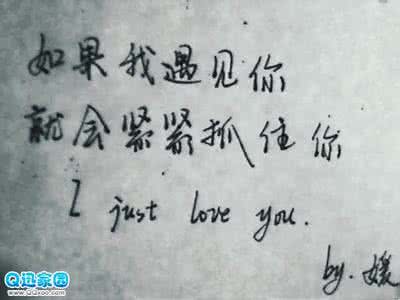 如果我遇见你
就会紧紧抓住你
I just love you.
by.媛
Q迅家园
www.QQxoo.com